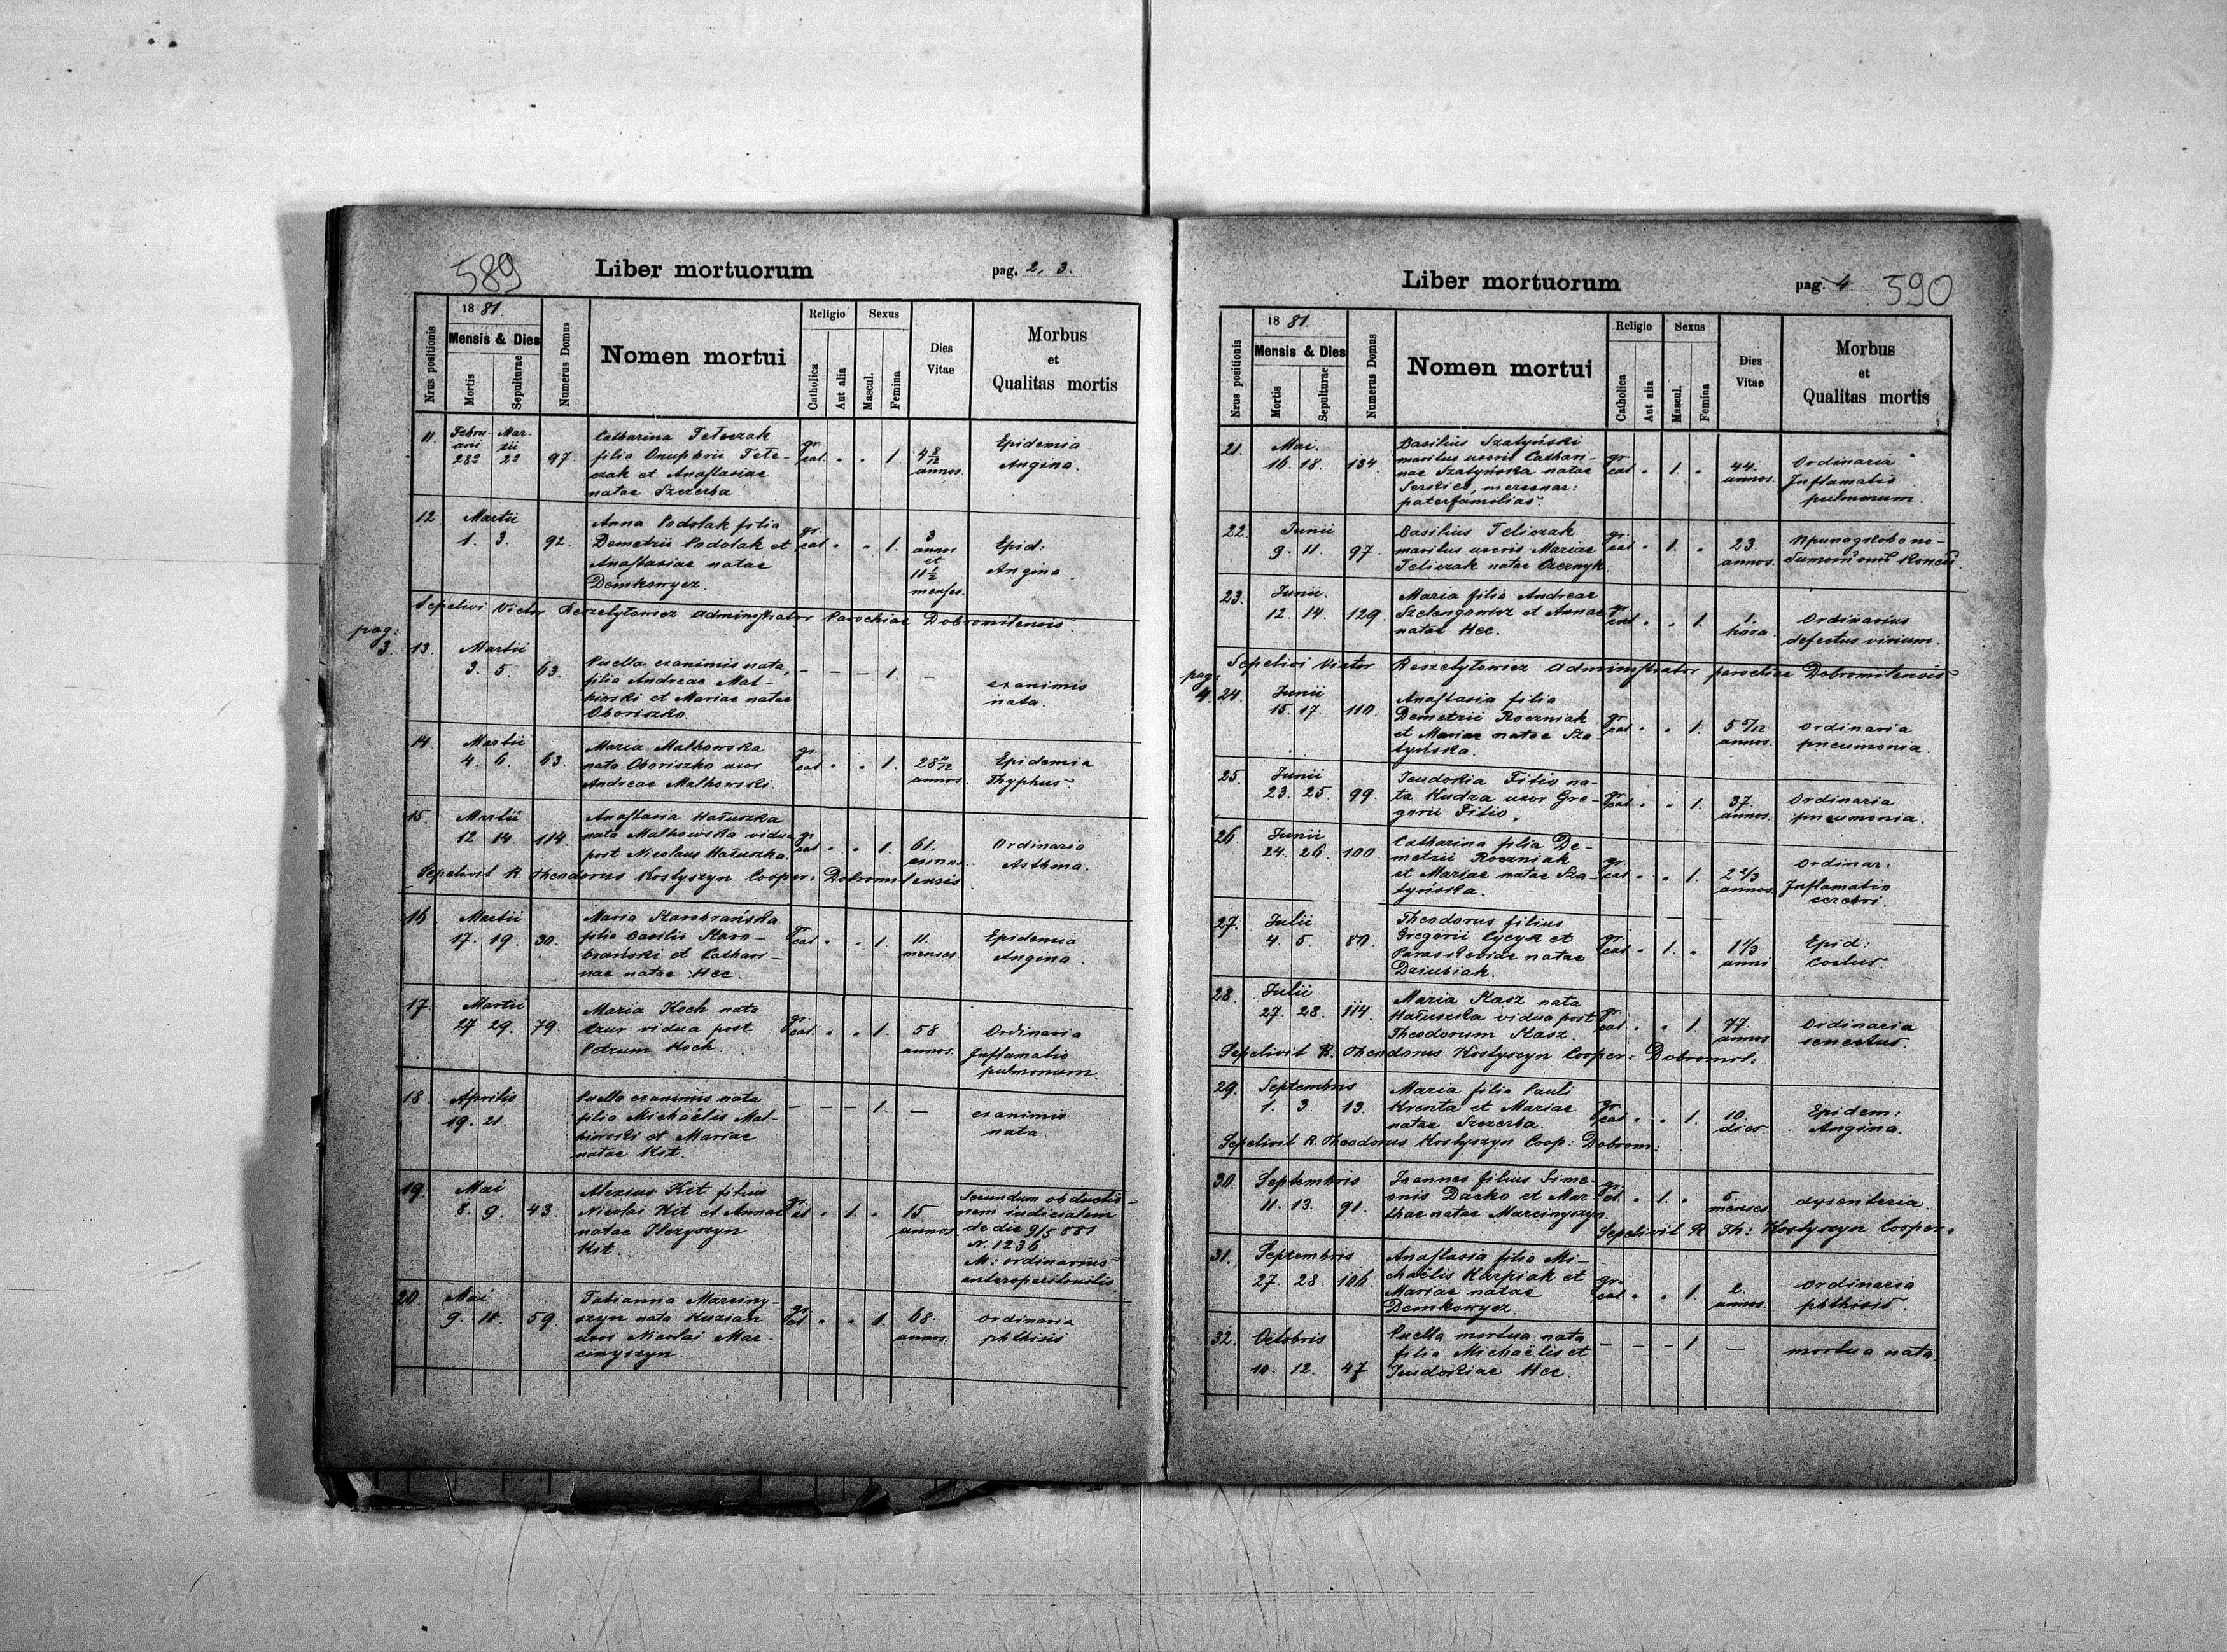 589
Liber mortuorum
pag. 2, 3.
Nrus positionis
18 81.
Mensis & Dies
Mortis
Sepulturae
Numerus Domus
Nomen mortui
Religio
Catholica
Aut alia
Sexus
Mascul.
Femina
Dies Vitae
Morbus
et
Qualitas mortis
11. Februarii 28a Martii 2a 97. gr. cat. " " 1. 4 8/12 annos. Epidemia Angina.
Catharina Teleczak
filia Onuphrii Tele-
czak et Anastasiae
natae Szczerba
12 Martii 1. 3. 92. gr. cat " " 1. 3 annos et 11 1/2 menses. Epid: Angina.
Anna Podolak filia
Demetrii Podolak et
Anastasiae natae
Demkowycz.
Sepelivi Victor Reszetyłowicz administrator Parochiae Dobromilensis.
pag: 3.
13. Martii 3. 5. 63. — — — 1. — exanimis nata.
Puella exanimis nata,
filia Andreae Mal-
howski et Mariae natae
Oboriszko.
14 Martii 4. 6. 63. gr. cat " " 1. annos. Epidemia Thyphus.
Maria Malhowska
nata Oboriszko uxor
Andreae Malhowski.
15. Martii 12 14. 114. gr. cat " " 1. 61. annos. Ordinaria Asthma.
Anastasia Hałuszka
nata Malhowska vidua
post Nicolaus Hałuszka.
Sepelivit R. Theodorus Kostyszyn Cooper: Dobromilensis
16 Martii 17. 19. 30. gr. cat " " 1. 11. menses. Epidemia Angina.
Maria Starobrańska
filia Basilii Staro-
brański et Cathari-
nae natae Hec.
17. Martii 27 29. 79. gr. cat. " " 1. 58 annos. Ordinaria Inflamatio pulmonum.
Maria Koch nata
vidua post
Petrum Koch.
18 Aprilis 19. 21. — — — 1. — exanimis nata.
Puella exanimis nata
filia Michaëlis Mal-
howski et Mariae
natae Kit.
19. Mai 8. 9. 43. gr. ct " 1. " 15. annos
Alexius Kit filius
Nicolai Kit et Annae
natae
Kit.
Secundum obductio-
nem iudicialem
de die 9/5 881
N. 1236
M: ordinarius
enteroperitonitis.
20. Mai 9. 11. 59. gr. cat " " 1. 68. annos. Ordinaria phthisis
Tatianna Marciny-
szyn nata Kuzian
uxor Nicolai Mar-
cinyszyn.
Liber mortuorum
pag. 4.
590
Nrus positionis
18 81.
Mensis & Dies
Mortis
Sepulturae
Numerus Domus
Nomen mortui
Religio
Catholica
Aut alia
Sexus
Mascul.
Femina
Dies Vitae
Morbus
et
Qualitas mortis
21. Mai. 16. 18. 134. gr. cat " 1. " 44. annos. Ordinaria Inflamatio pulmonum.
Basilius Szatyński
maritus uxoris Cathari-
nae Szatyńska natae
mercenar:
paterfamilias.
22. Junii 9. 11. 97. gr. cat " 1. " 23. annos.
Basilius Teliczak
maritus uxoris Mariae
Teliczak natae Czernyk.
23. Junii. 12. 14. 129. gr. cat " " 1. 1. hora. Ordinarius defectus virium.
Maria filia Andreae
Szelengowicz et Annae
natae Hec.
Sepelivi Victor Reszetyłowicz administrator parochiae Dobromilensis
pag. 4.
24. Junii 15. 17. 110. gr. cat " " 1. 5 5/12 annos. Ordinaria pneumonia.
Anastasia filia
Demetrii Roczniak
et Mariae natae Sza-
tyńska.
25. Junii 23. 25. 99. gr. cat. " " 1. 37. annos. Ordinaria pneumonia.
Eudokia Fitio na-
ta Kudza uxor Gre-
gorii Fitio.
26 Junii 24. 26. 100. gr. cat " " 1. 2 2/3 annos. Ordinar: Inflamatio cerebri.
Catharina filia De-
metrii Roczniak
et Mariae natae Sza-
tyńska.
27. Julii 4. 5. 80. gr. cat " 1. " 1 1/3 anni Epid:
Theodorus filius
Gregorii Cycyk et
Paraskeviae natae
Dziubiak.
28. Julii 27. 28. 114. gr. cat " " 1. 77. annos Ordinaria senectus.
Maria Stasz nata
Hałuszka vidua post
Theodorum Stasz.
Sepelivit R. Theodorus Kostyszyn Cooper: Dobromil:
29. Septembris 1. 3. 13. gr. cat " " 1. 10. dies. Epidem: Angina.
Maria filia Pauli
Krenta et Mariae
natae Szczerba.
Sepelivit R. Theodorus Kostyszyn Coop: Dobrom:
30. Septembris 11. 13. 91. gr. ct. " 1. " menses. dysenteria.
Joannes filius Sime-
onis Dacko et Mar-
thae natae Marcinyszyn.
Sepelivit R. Th: Kostyszyn Cooper:
31. Septembris 27. 28. 106. gr. cat " " 1. 2. annos. Ordinaria phthisis.
Anastasia filia Mi-
chaëlis Karpiak et
Mariae natae
Demkowycz.
32. Octobris 10. 12. 47 — — — 1. — mortua nata.
Puella mortua nata
filia Michaëlis et
Eudokiae Hec.